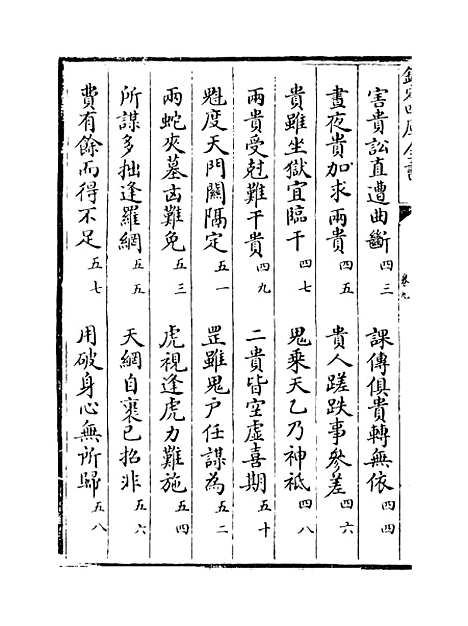 欽定四庫全書
卷九
害貴訟直遭曲斷 四三 課傳俱貴轉無依 四四
晝夜貴加求兩貴 四五 貴人蹉跌事參差 四六
貴雖坐獄宜臨干 四七 鬼乘天乙乃神祗 四八
兩貴受尅難干貴 四九 二貴皆空虛喜期 五十
魁度天門關隔定 五一 罡雖鬼户任謀為 五二
兩蛇夾墓凶難免 五三 虎視逢虎力難施 五四
所謀多拙逢羅網 五五 天網自裹已招非 五六
費有餘而得不足 五七 用破身心無所歸 五八